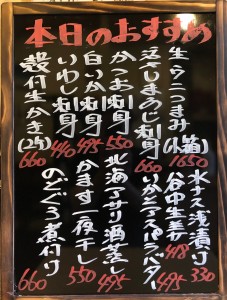 本日のおすすめ
生ウニつまみ(小箱) 1650
活〆しまあじ刺身 660
かつお刺身 550
白いか刺身 495
いわし刺身 440
殻付生かき(2ケ) 660
水ナス浅漬け 330
谷中生姜 418
いかとアスパラバター 495
北海アサリ酒蒸し 495
かます一夜干し 550
のどぐろ煮付け 660